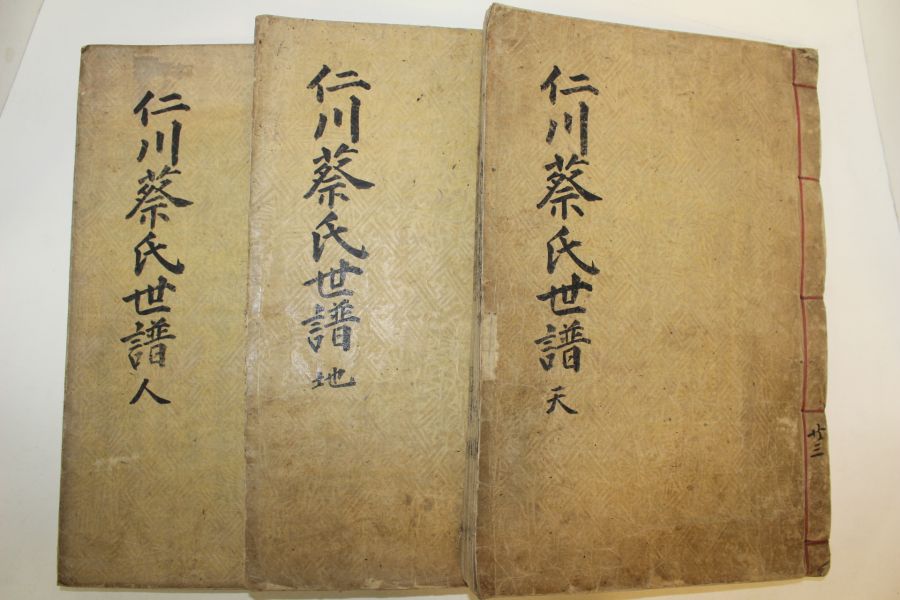 仁川蔡氏世譜 天
仁川蔡氏世譜 地
仁川蔡氏世譜 人
共三